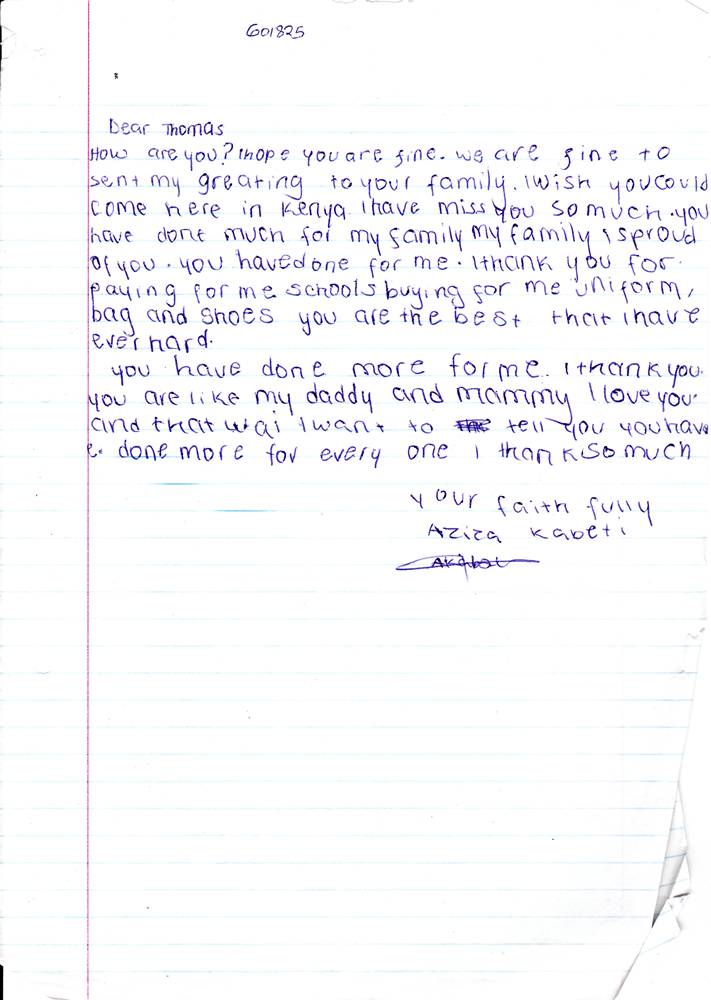 G01825
Dear Thomas
How are you? I hope you are fine. we are fine to
sent my greating to your family. I wish you could
come here in Kenya. I have miss you so much. you
have done much for my family my family is proud
of you. you have done for me. I thank you for.
paying for me schools buying for me uniform,
bag and shoes you are the best that I have
ever hard.
you have done more for me. I thank you.
you are like my daddy and mammy I love you.
and that wai I want to tell you you have
e. done more for every one I thank so much
your faith fully
Aziza Kabeti